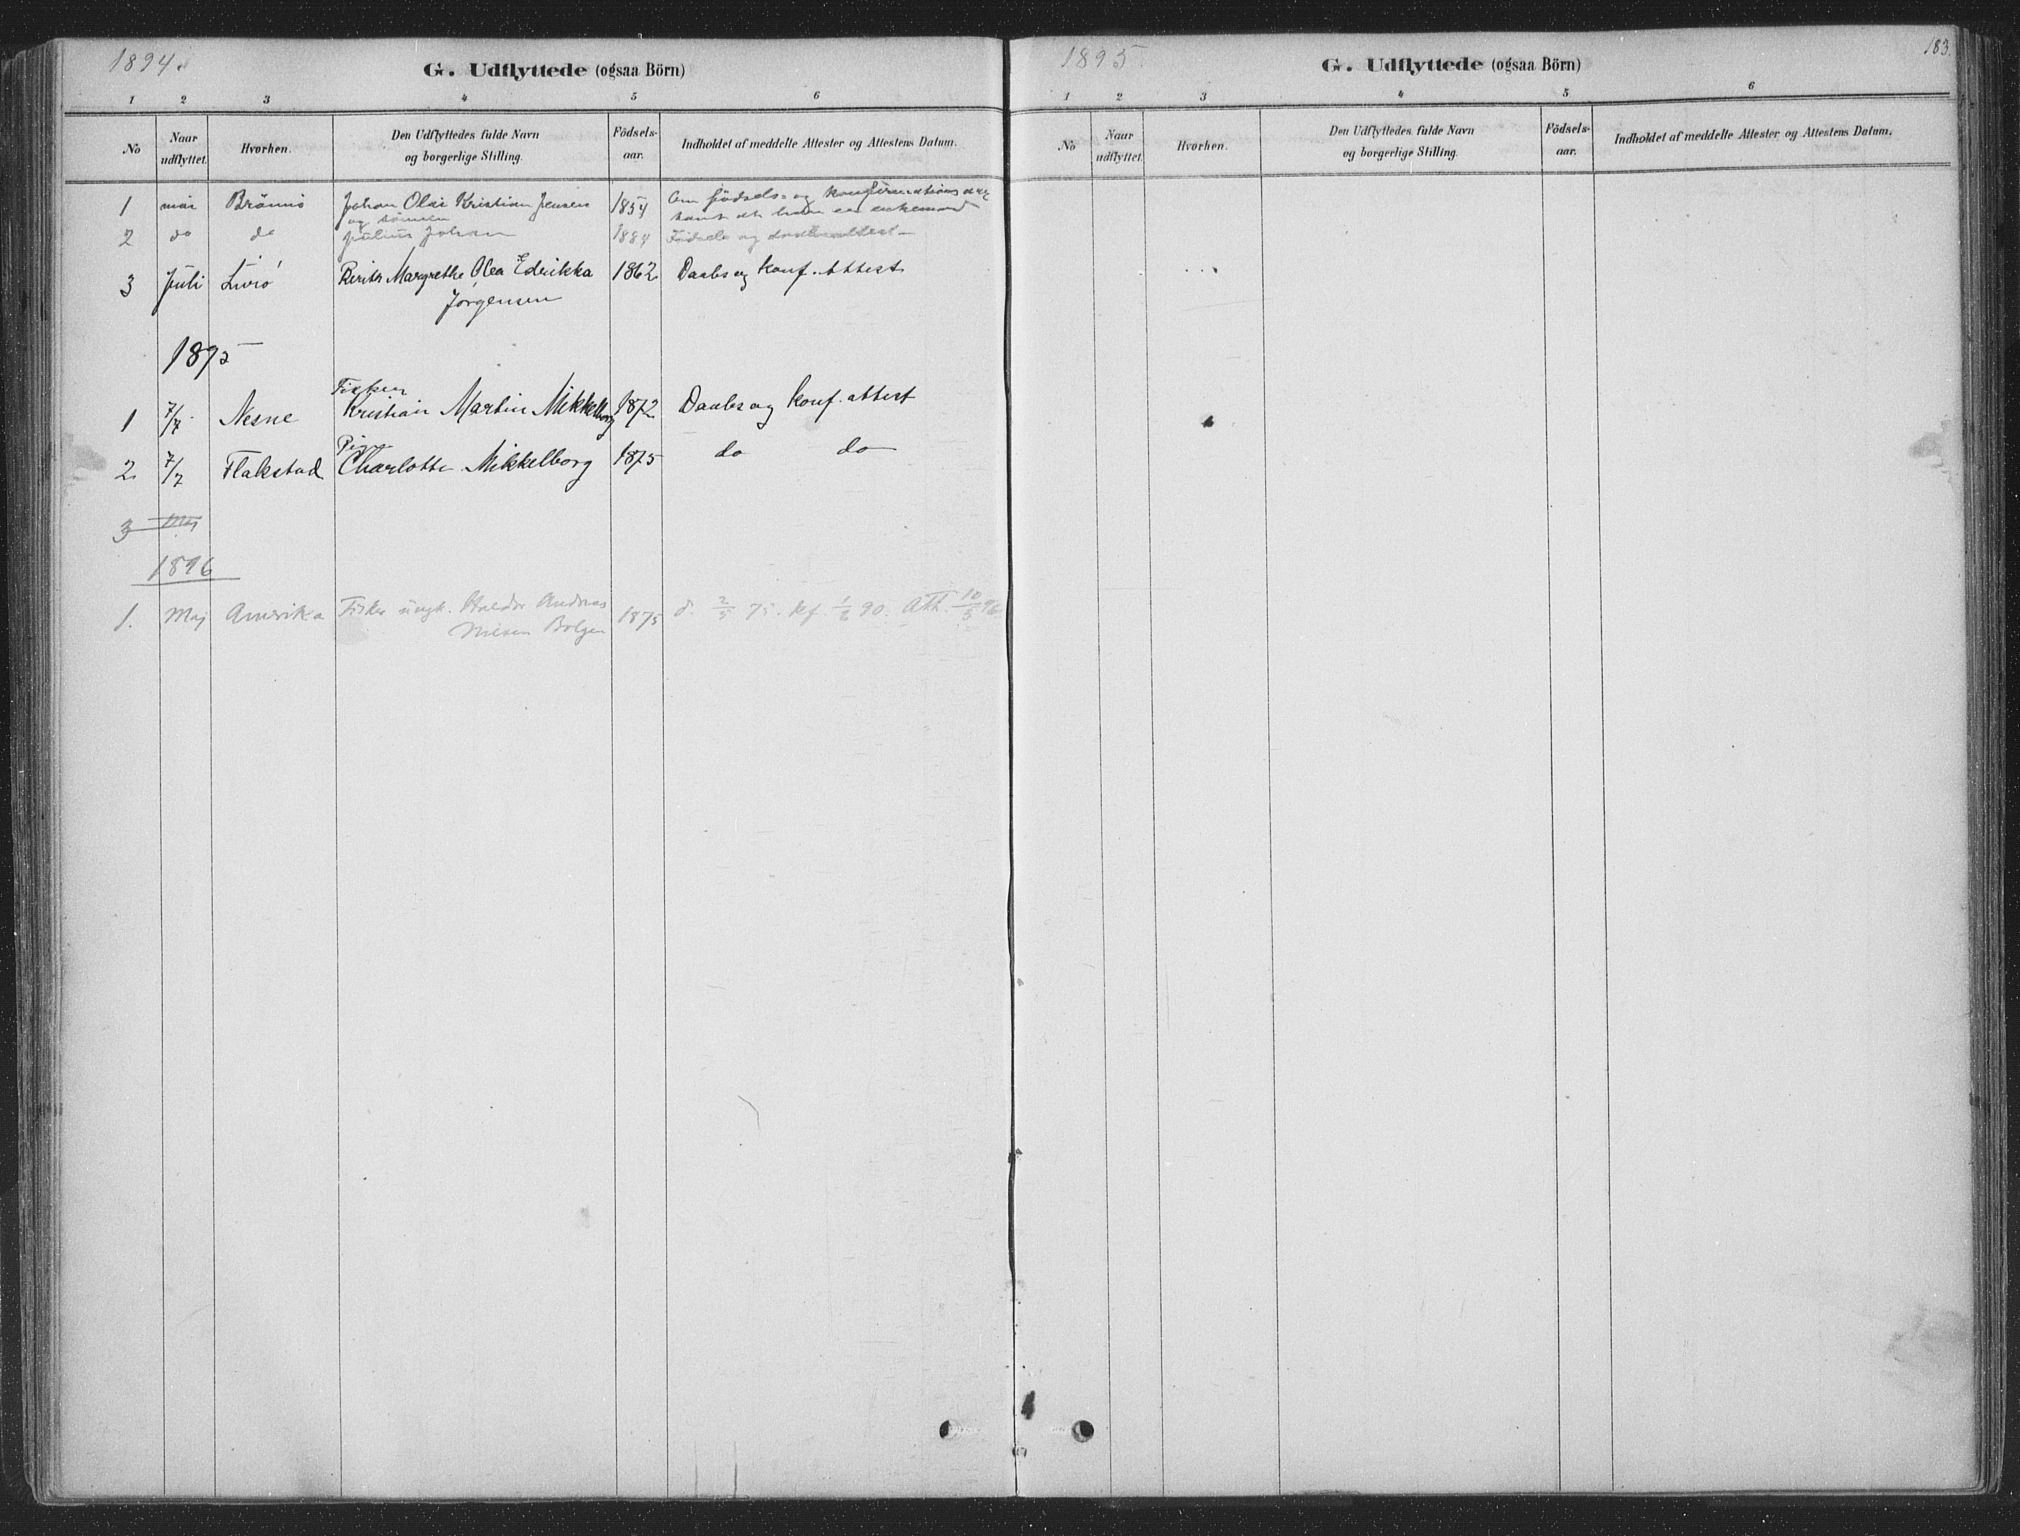 1894.
G. Udflyttede (ogsaa Börn)
1 2 3 4 5 6
No Naar udflyttet. Hvorhen. Den Udflyttedes fulde Navn og borgerlige Stilling. Födsels-aar. Indholdet af meddelte Attester og Attestens Datum.
1 mai Brønnø Johan Olai Kristian Jensen 1854 Om fødsels- og konfirmations
og sønnen samt at han er enkemand
2 do do Julius Johan 1884 Fødsels og daabsattest
3 Juli Lurø Berith Margrethe Olea Edrikka 1862 Daabs og konf. Attest
Jørgensen
1895
Fisker
1 7/7 Nesne Kristian Martin Mikkelborg 1872 Daabs og konf. attest
Pige
2 7/7 Flakstad Charlotte Mikkelborg 1875 do do
3 Maj
1896
1. Maj Amerika Fisker ungk. Haldor Andreas 1875 d. 2/5 75. kf. 90. Att. 10/5 96
Nilsen Bolgen
1895.
183.
G. Udflyttede (ogsaa Börn)
1 2 3 4 5 6
No Naar udflyttet. Hvorhen. Den Udflyttedes fulde Navn og borgerlige Stilling. Födsels-aar. Indholdet af meddelte Attester og Attestens Datum.